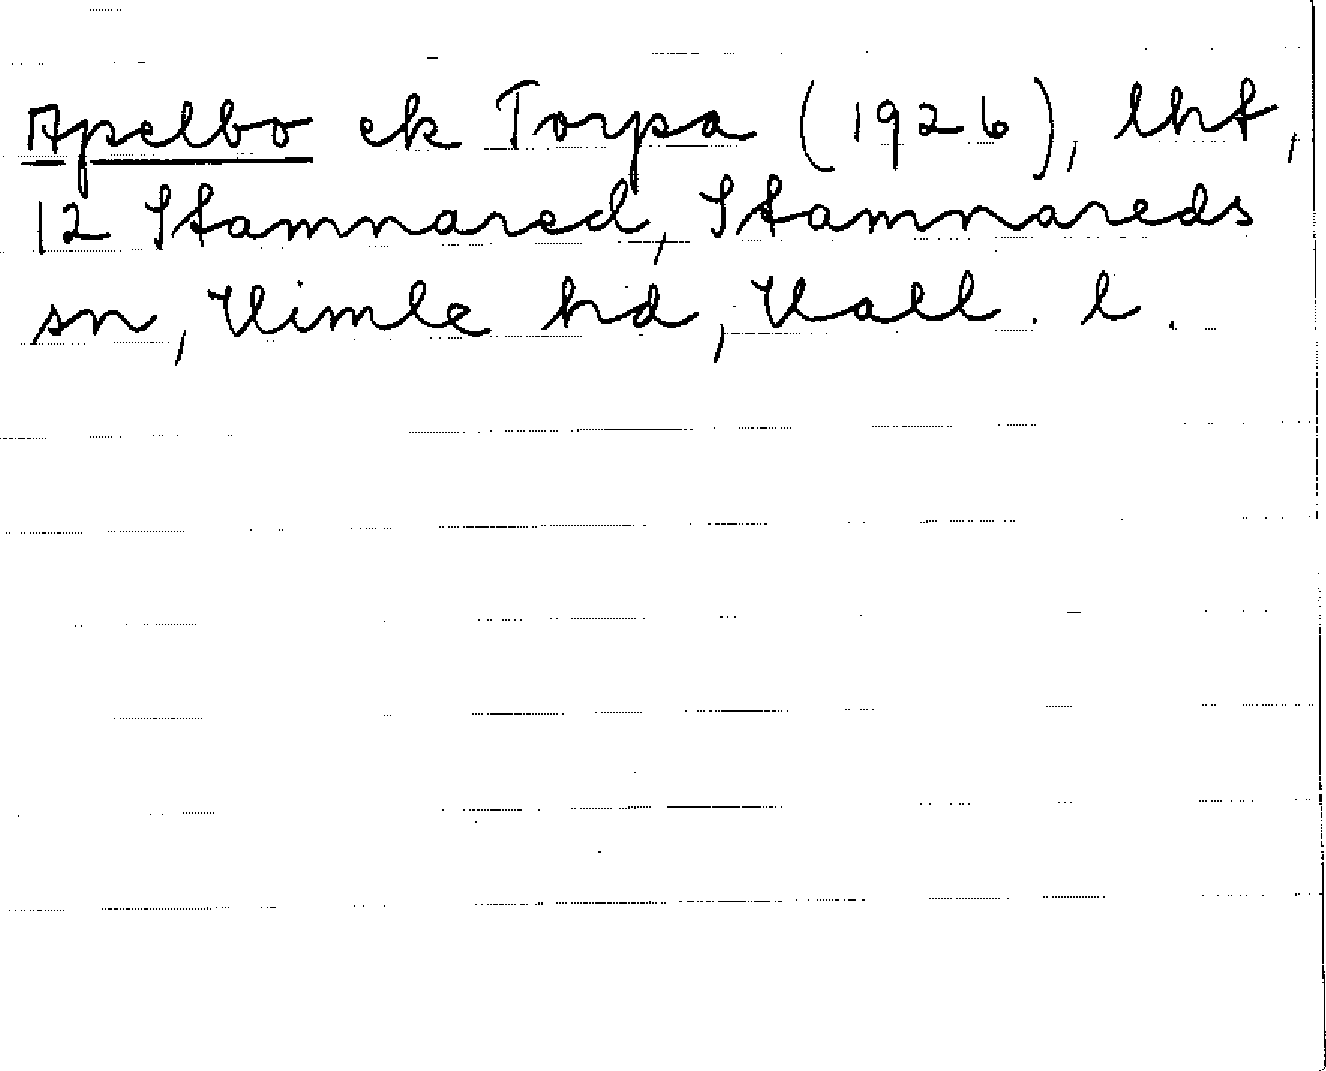 Apelbo ek Torpa (1926), lht,
12 Stamnared, Stamnareds
sn, Himle hd, Hall. l.